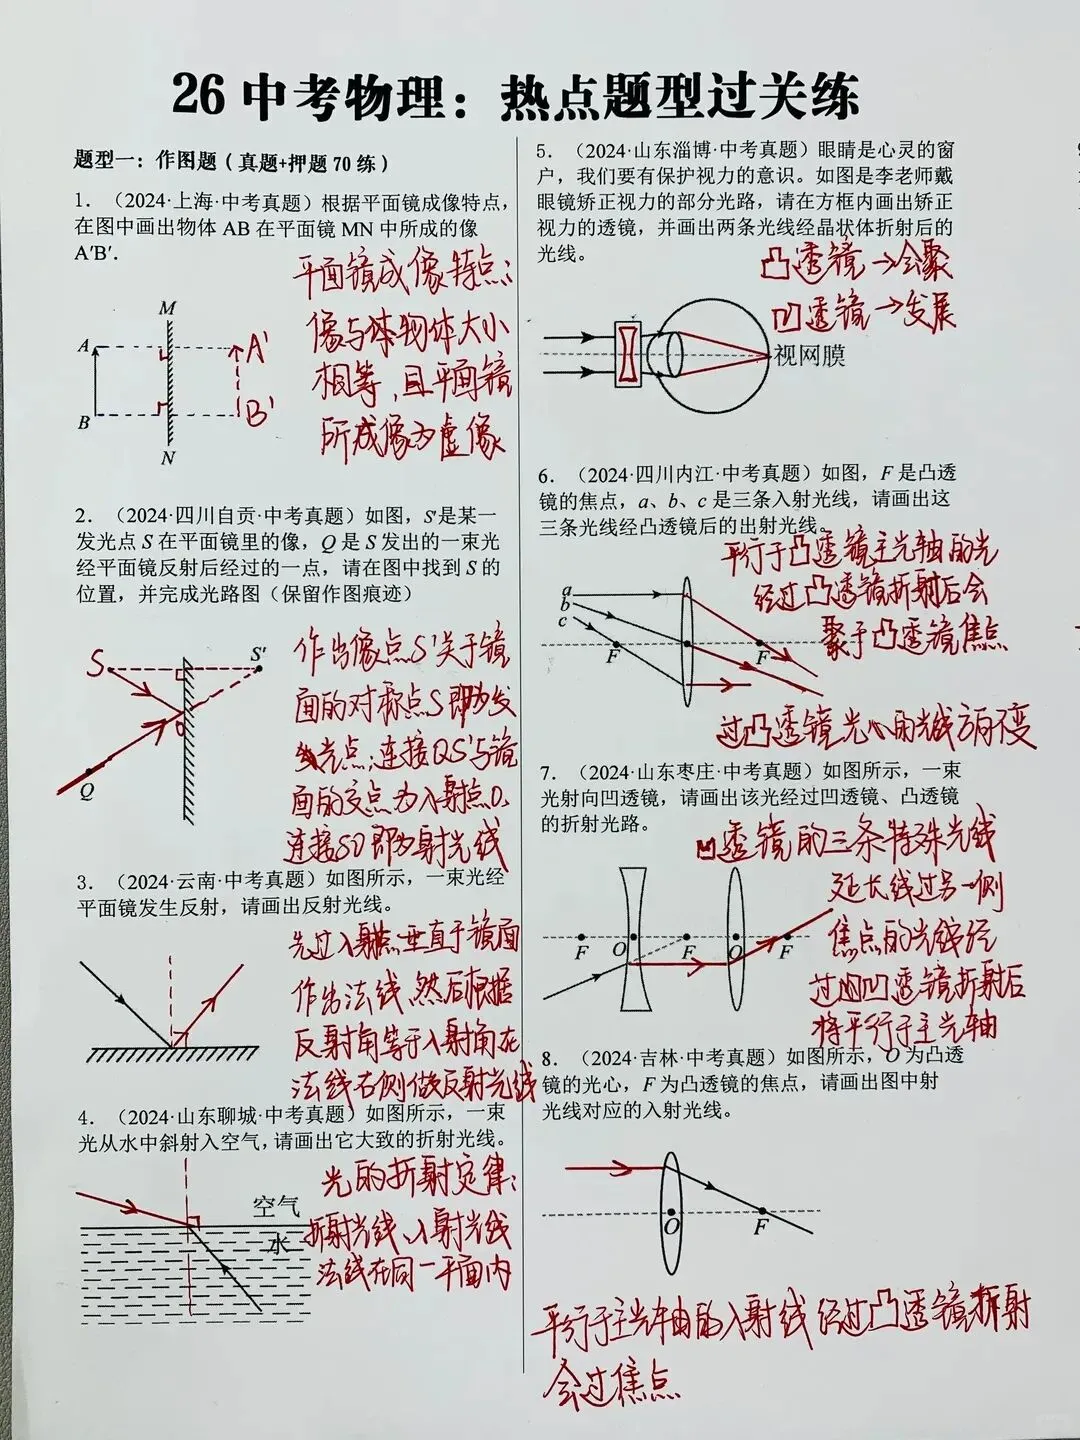 26 中考物理：热点题型过关练
题型一：作图题（真题+押题 70 练）
1．（2024·上海·中考真题）根据平面镜成像特点，
在图中画出物体 AB 在平面镜 MN 中所成的像
A′B′．
平面镜成像特点：
像与物体大小
相等，且平面镜
所成像为虚像
M
A
A′
B
B′
N
2．（2024·四川自贡·中考真题）如图，S′是某一
发光点 S 在平面镜里的像，Q 是 S 发出的一束光
经平面镜反射后经过的一点，请在图中找到 S 的
位置，并完成光路图（保留作图痕迹）
S
S′
Q
作出像点S′关于镜
面的对称点S即为发
光点；连接QS′与镜
面的交点为入射点O，
连接SO即为入射光线
3．（2024·云南·中考真题）如图所示，一束光经
平面镜发生反射，请画出反射光线。
先过入射点垂直于镜面
作出法线，然后根据
反射角等于入射角在
法线右侧做反射光线
4．（2024·山东聊城·中考真题）如图所示，一束
光从水中斜射入空气，请画出它大致的折射光线。
光的折射定律：
折射光线、入射光线
法线在同一平面内
空气
水
5．（2024·山东淄博·中考真题）眼睛是心灵的窗
户，我们要有保护视力的意识。如图是李老师戴
眼镜矫正视力的部分光路，请在方框内画出矫正
视力的透镜，并画出两条光线经晶状体折射后的
光线。
凸透镜→会聚
凹透镜→发展
视网膜
6．（2024·四川内江·中考真题）如图，F 是凸透
镜的焦点，a、b、c 是三条入射光线，请画出这
三条光线经凸透镜后的出射光线。
平行于凸透镜主光轴的光
经过凸透镜折射后会
聚于凸透镜焦点
a
b
c
F
F
过凸透镜光心的光线方向不变
7．（2024·山东枣庄·中考真题）如图所示，一束
光射向凹透镜，请画出该光经过凹透镜、凸透镜
的折射光路。
凹透镜的三条特殊光线
延长线过另一侧
焦点的光线经
过凹透镜折射后
将平行于主光轴
F O F O F
8．（2024·吉林·中考真题）如图所示，O 为凸透
镜的光心，F 为凸透镜的焦点，请画出图中射
光线对应的入射光线。
O F
平行于主光轴的入射线经过凸透镜折射
会过焦点